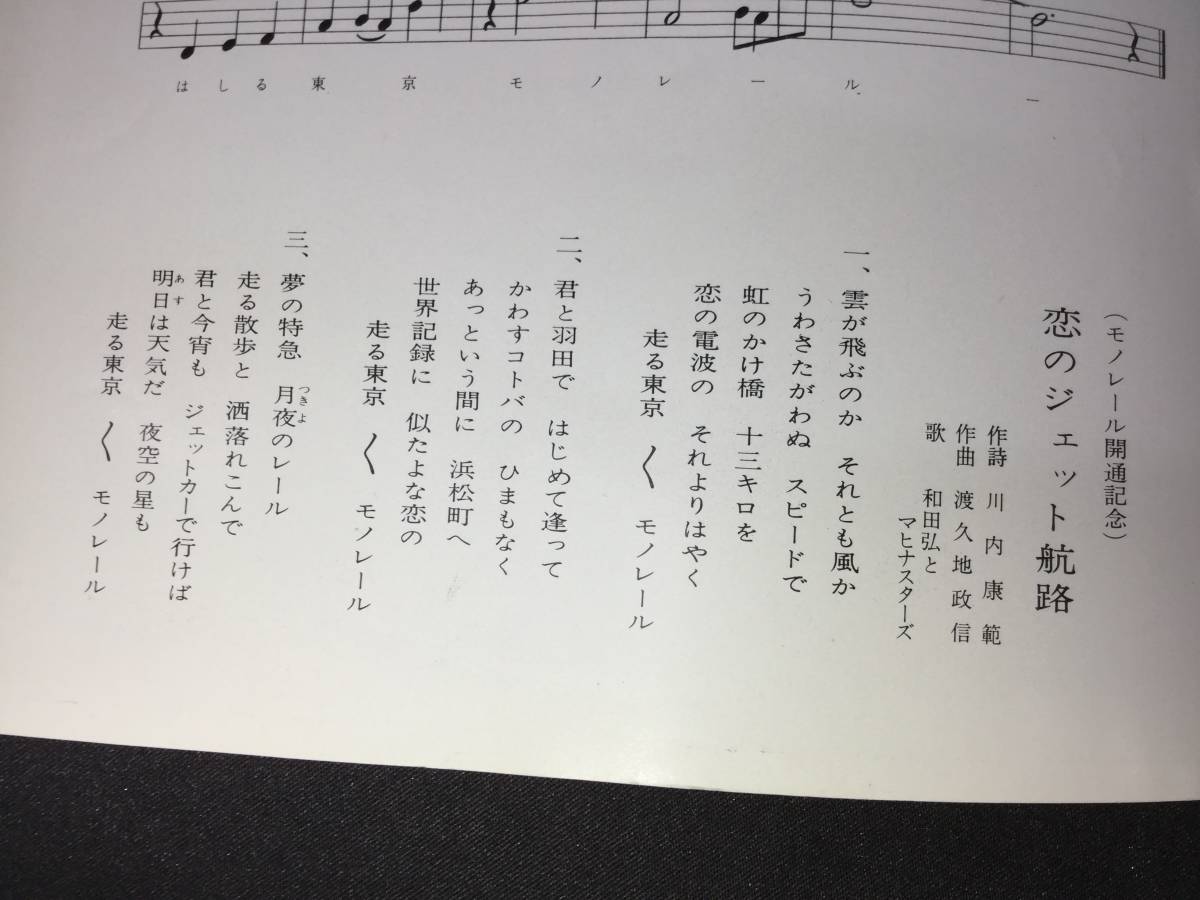 はしる東京モノレール ー
(モノレール開通記念)
恋のジェット航路
作詩 川内康範
作曲 渡久地政信
歌 和田弘と
マヒナスターズ
一、雲が飛ぶのか それとも風か
うわさたがわぬ スピードで
虹のかけ橋 十三キロを
恋の電波の それよりはやく
走る東京 〱 モノレール
二、君と羽田で はじめて逢って
かわすコトバの ひまもなく
あっという間に 浜松町へ
世界記録に 似たよな恋の
走る東京 〱 モノレール
三、夢の特急 月夜のレール
つきよ
走る散歩と 洒落れこんで
君と今宵も ジェットカーで行けば
明日は天気だ 夜空の星も
あす
走る東京 〱 モノレール